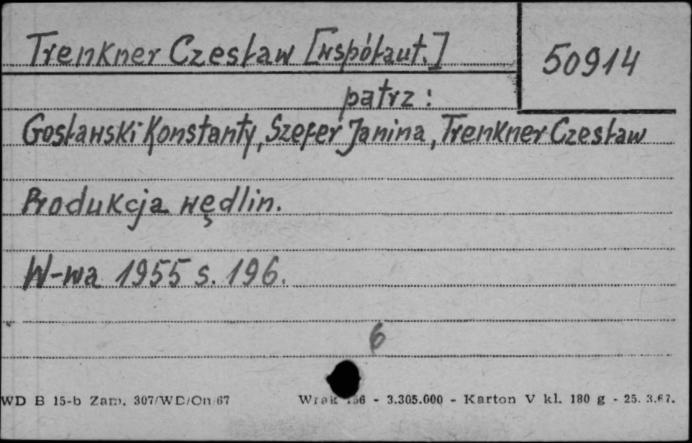 Trenkner Czesław [współaut.]
50914
patrz:
Gosławski Konstanty, Szefer Janina, Trenkner Czesław
Produkcja wędlin.
W-wa 1955 s. 196.
6
WD B 15-b Zam. 307/WD/On/67 - 3.305.000 - Karton V kl. 180 g - 25. 3.67.